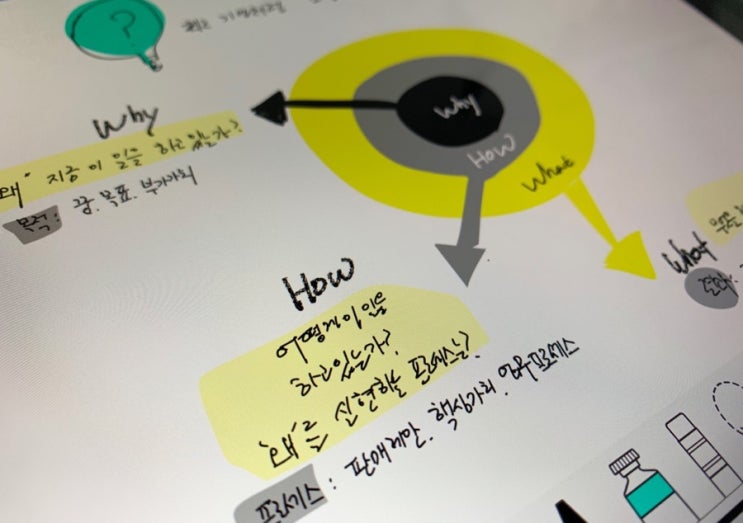 ?
Why
"왜" 지금 이 일을 하고 있는가?
목적: 꿈. 목표. 부가가치
Why
HOW
What
HOW
어떻게 이 일을
하고 있는가?
'왜'를 실현할 프로세스는?
프로세스: 판매제안. 핵심가치. 업무프로세스
What